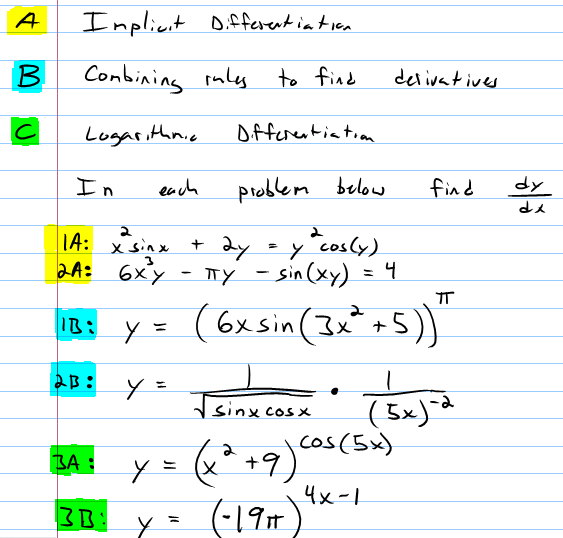 A Implicit Differentiation
B Combining rules to find derivatives
C Logarithmic Differentiation
In each problem below find dy/dx
1A: x² sinx + 2y = y² cos(y)
2A: 6x³y - πy - sin(xy) = 4
1B: y = (6x sin(3x² + 5))^π
2B: y = 1/√(sinx cosx) · 1/(5x)⁻²
3A: y = (x² + 9)^cos(5x)
3B: y = (-19π)^(4x-1)